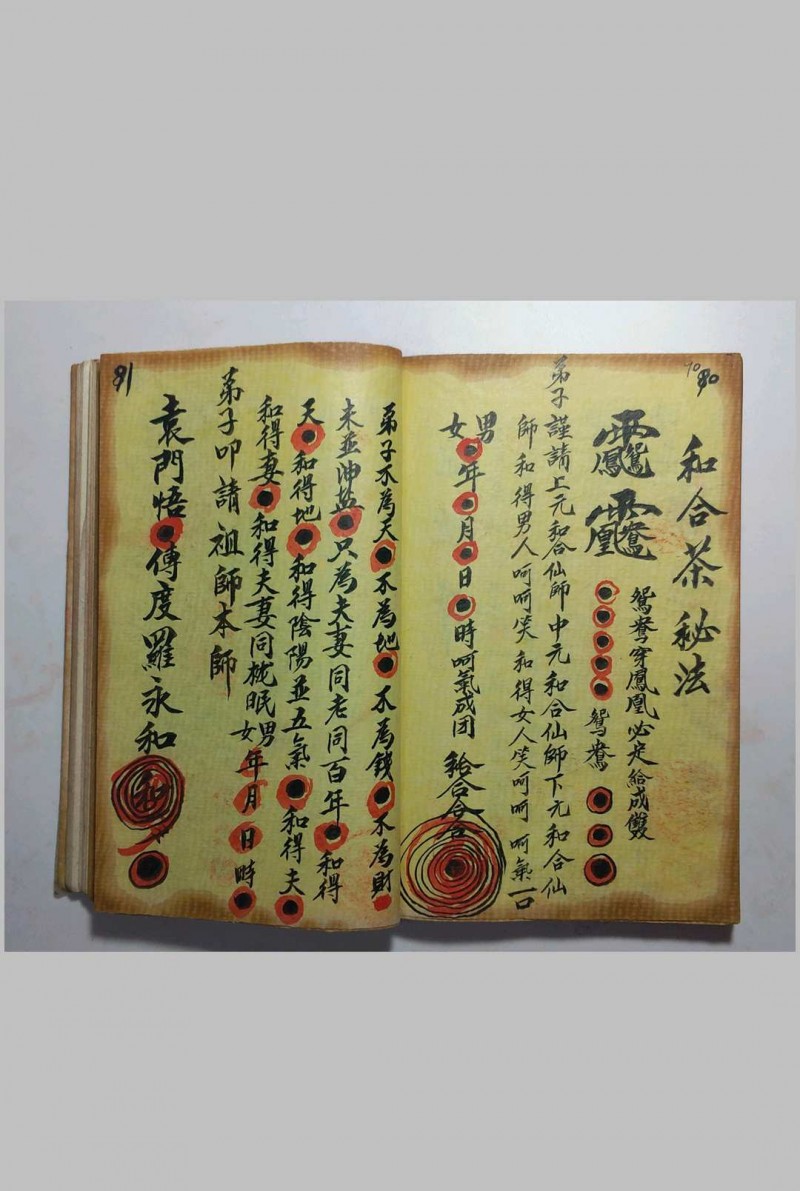 70
80
和合茶秘法
鴛鴦穿鳳凰必定給成雙
鴛鴦
弟子謹請上元和合仙師中元和合仙師下元和合仙
師和得男人呵呵笑和得女人笑呵呵呵氣一口
男
女年月日時呵氣成团
81
弟子不為天不為地不為錢不為財
未並油盐只為夫妻同老同百年和得
天和得地和得陰陽並五氣和得夫
和得妻和得夫妻同枕眠男女年月日時
弟子叩請祖師本師
袁門悟傳度羅永和
和